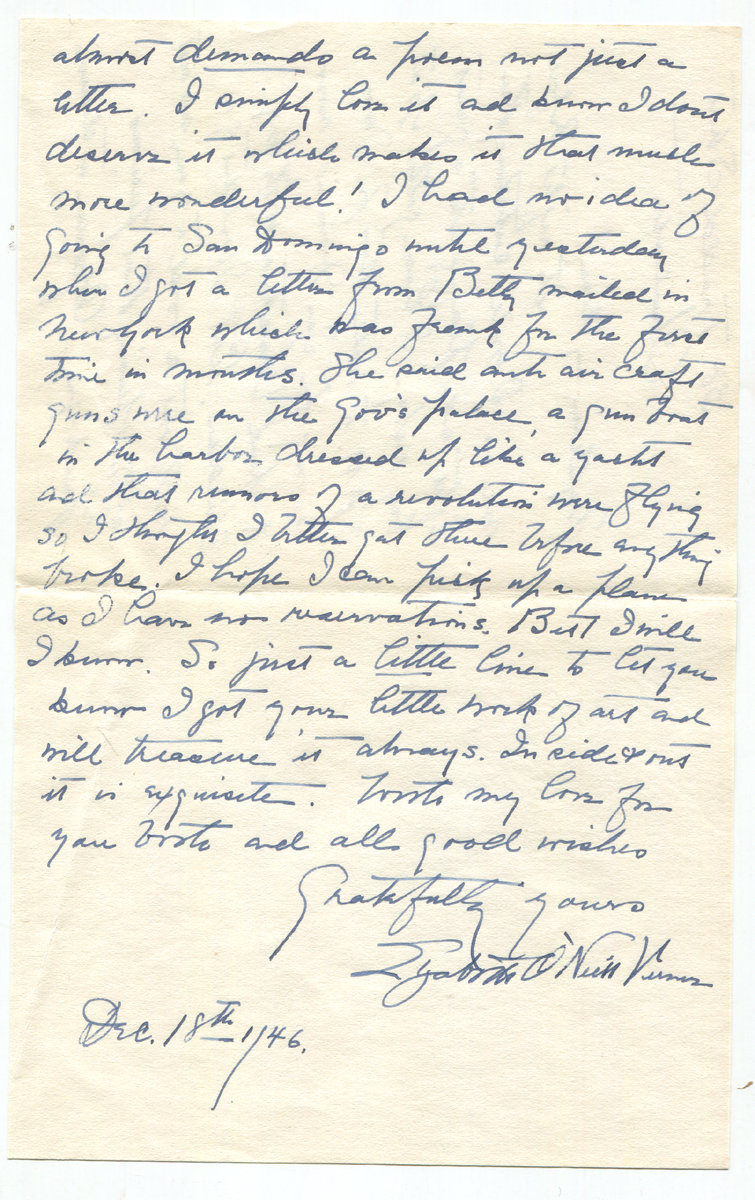 almost demands a poem not just a
letter. I simply love it and know I dont
deserve it which makes it that much
more wonderful! I had no idea of
going to San Domingo until yesterday
when I got a letter from Betty mailed in
New York which was frank for the first
time in months. She said anti air craft
guns were on the Gov's palace, a gun boat
in the harbor dressed up like a yacht
and that rumors of a revolution were flying
so I thought I better get there before anything
broke. I hope I can pick up a plane
as I have no reservations. But I will
I know. So just a little line to let you
know I got your little work of art and
will treasure it always. Inside & out
it is exquisite. With my love for
you both and all good wishes
Gratefully yours
Elizabeth O'Neill Verner
Dec. 18th 1946.